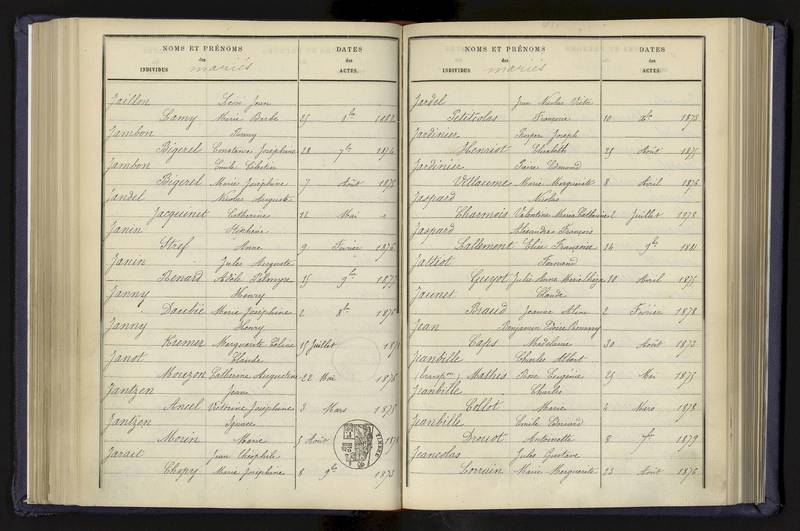 NOMS ET PRÉNOMS DATES
des des
INDIVIDUS mariés ACTES.
Jaillon
Lamy Marie Barbe 25 1882
Jambon Remy
Bigerel Constance Joséphine 28 7bre 1874
Jambon Emile Célestin
Bigerel Marie Joséphine 7 Août 1875
Jandel Nicolas Auguste
Jacquinet Catherine 12 Mai
Janin Stéphane
Stref Anne 9 Février 1876
Janin Jules Auguste
Renard Adèle Palmyre 25 9bre 1877
Janny Henry
Daubié Marie Joséphine 2 8bre 1878
Janny Henry
Kremer Marguerite 15 Juillet
Janot Claude
Mougon Catherine Augustine 22 Mai 1876
Jantzen Jean
Ansel Victorine Joséphine 3 Mars 1875
Jantzon Ignace
Morin Marie 5 Août
Jarait Jean Théophile
Chopy Marie Joséphine 8 9bre 1873
NOMS ET PRÉNOMS DATES
des des
INDIVIDUS mariés ACTES.
Jardel Jean Nicolas Victor
Petitcolas Françoise 10 Xbre 1873
Jardinier Prosper Joseph
Henriot Elisabeth 25 Août 1875
Jardinier Pierre Edmond
Villaume Marie Marguerite 8 Avril 1876
Jaspard Nicolas
Charmois Valentine Marie Catherine 2 Juillet 1878
Jaspard Alexandre François
Lallemont Elise Françoise 14 9bre 1881
Jattiot Fernand
Guyot Julie Anna Marie Thérèse 18 Avril 1875
Jaunet Claude
Biaud Jeanne Aline 2 Février 1878
Jean Benjamin
Caps Madeleine 30 Août 1873
Jeanbille Charles Albert
Mathis Rose Eugénie 25 Mai 1875
Jeanbille Charles
Collot Marie 4 Mars 1878
Jeanbille Emile Edouard
Drouot Antoinette 8 7bre 1879
Jeancolas Jules Gustave
Lorrain Marie Marguerite 23 Août 1876